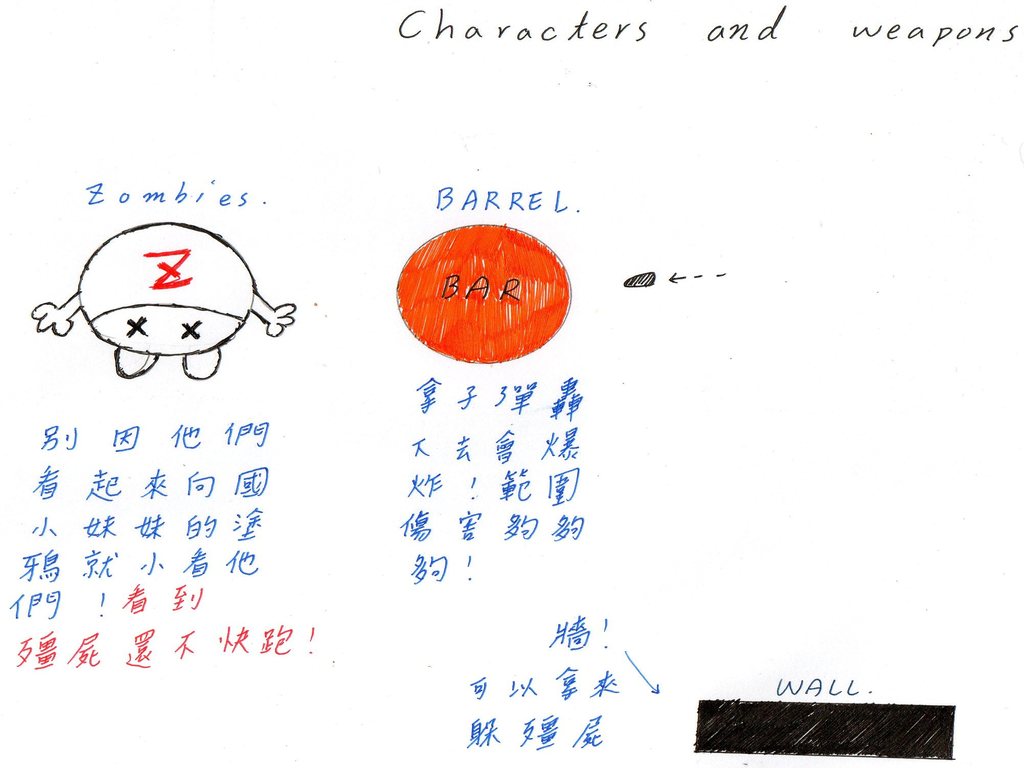 Characters and weapons
Zombies.
Z
別因他們
看起來向國
小妹妹的塗
鴉就小看他
們！看到
殭屍還不快跑！
BARREL.
BAR
拿子彈轟
下去會爆
炸！範圍
傷害夠夠
夠！
牆！
可以拿來
躲殭屍
WALL.